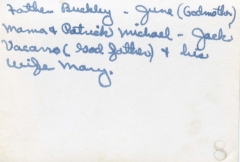 Father Buckley - June (Godmother)
Mama & Patrick Michael - Jack
Vacarro (God father) & his
Wife Mary.
8